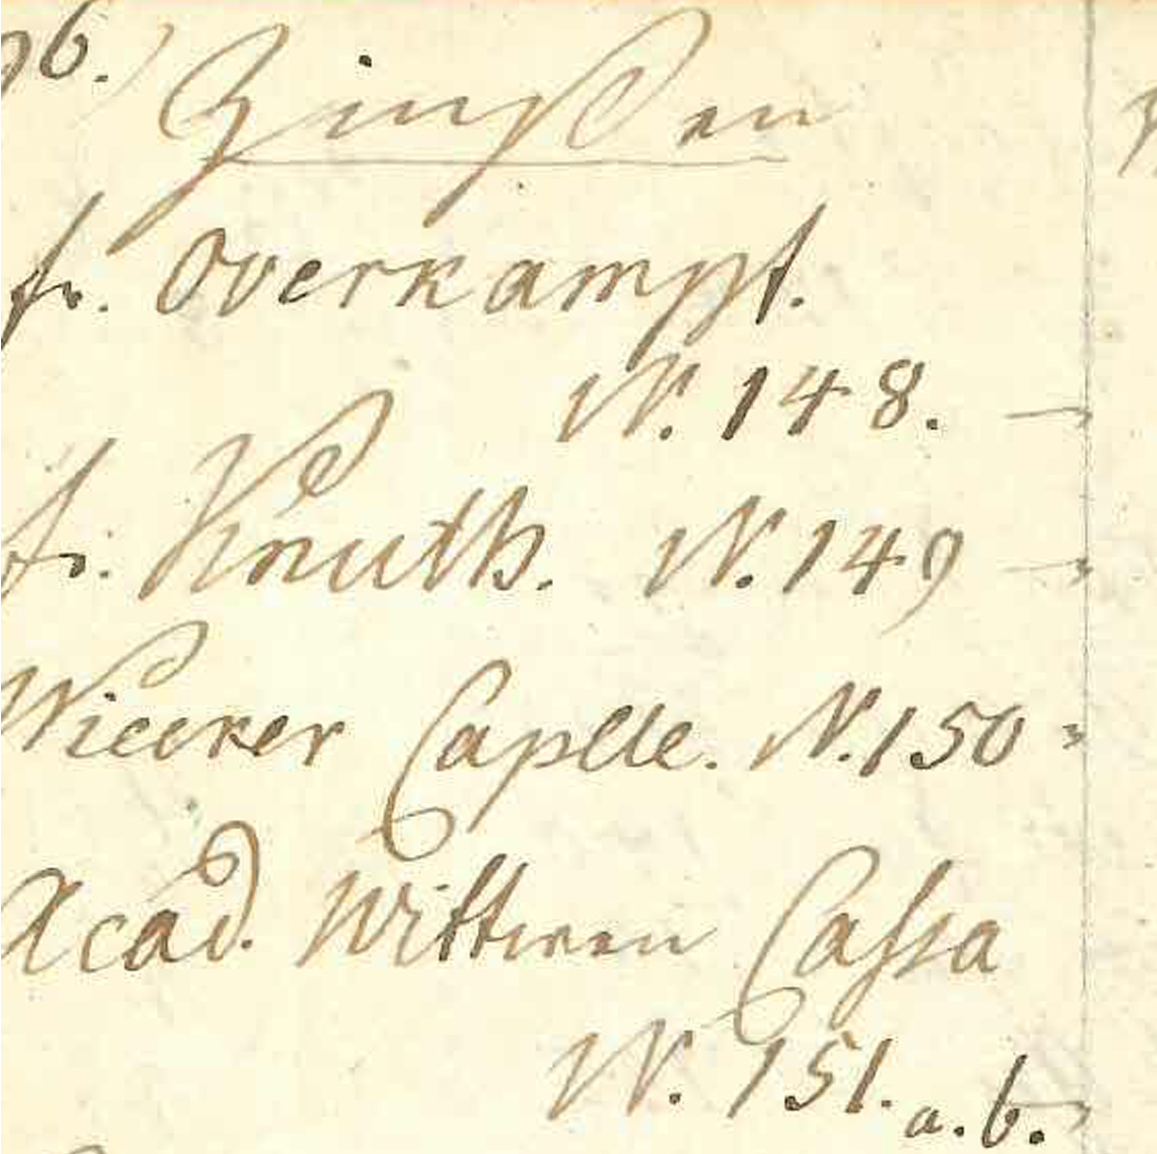 96.) Zinßen
fr. Overkampf.
N. 148.
fr. Knuth. N. 149
Wieker Caplle. N. 150
Acad. Wittwen Cassa
N. 151. a. b.